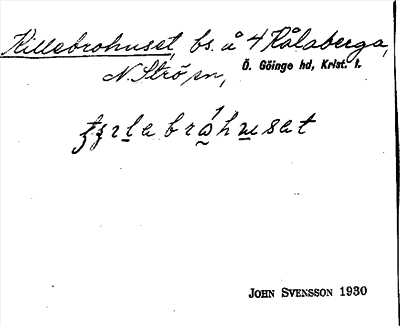 Killebrohuset, bs. å 4 Kålaberga,
N. Strö sn,
Ö. Göinge hd, Krist. l.
John Svensson 1930